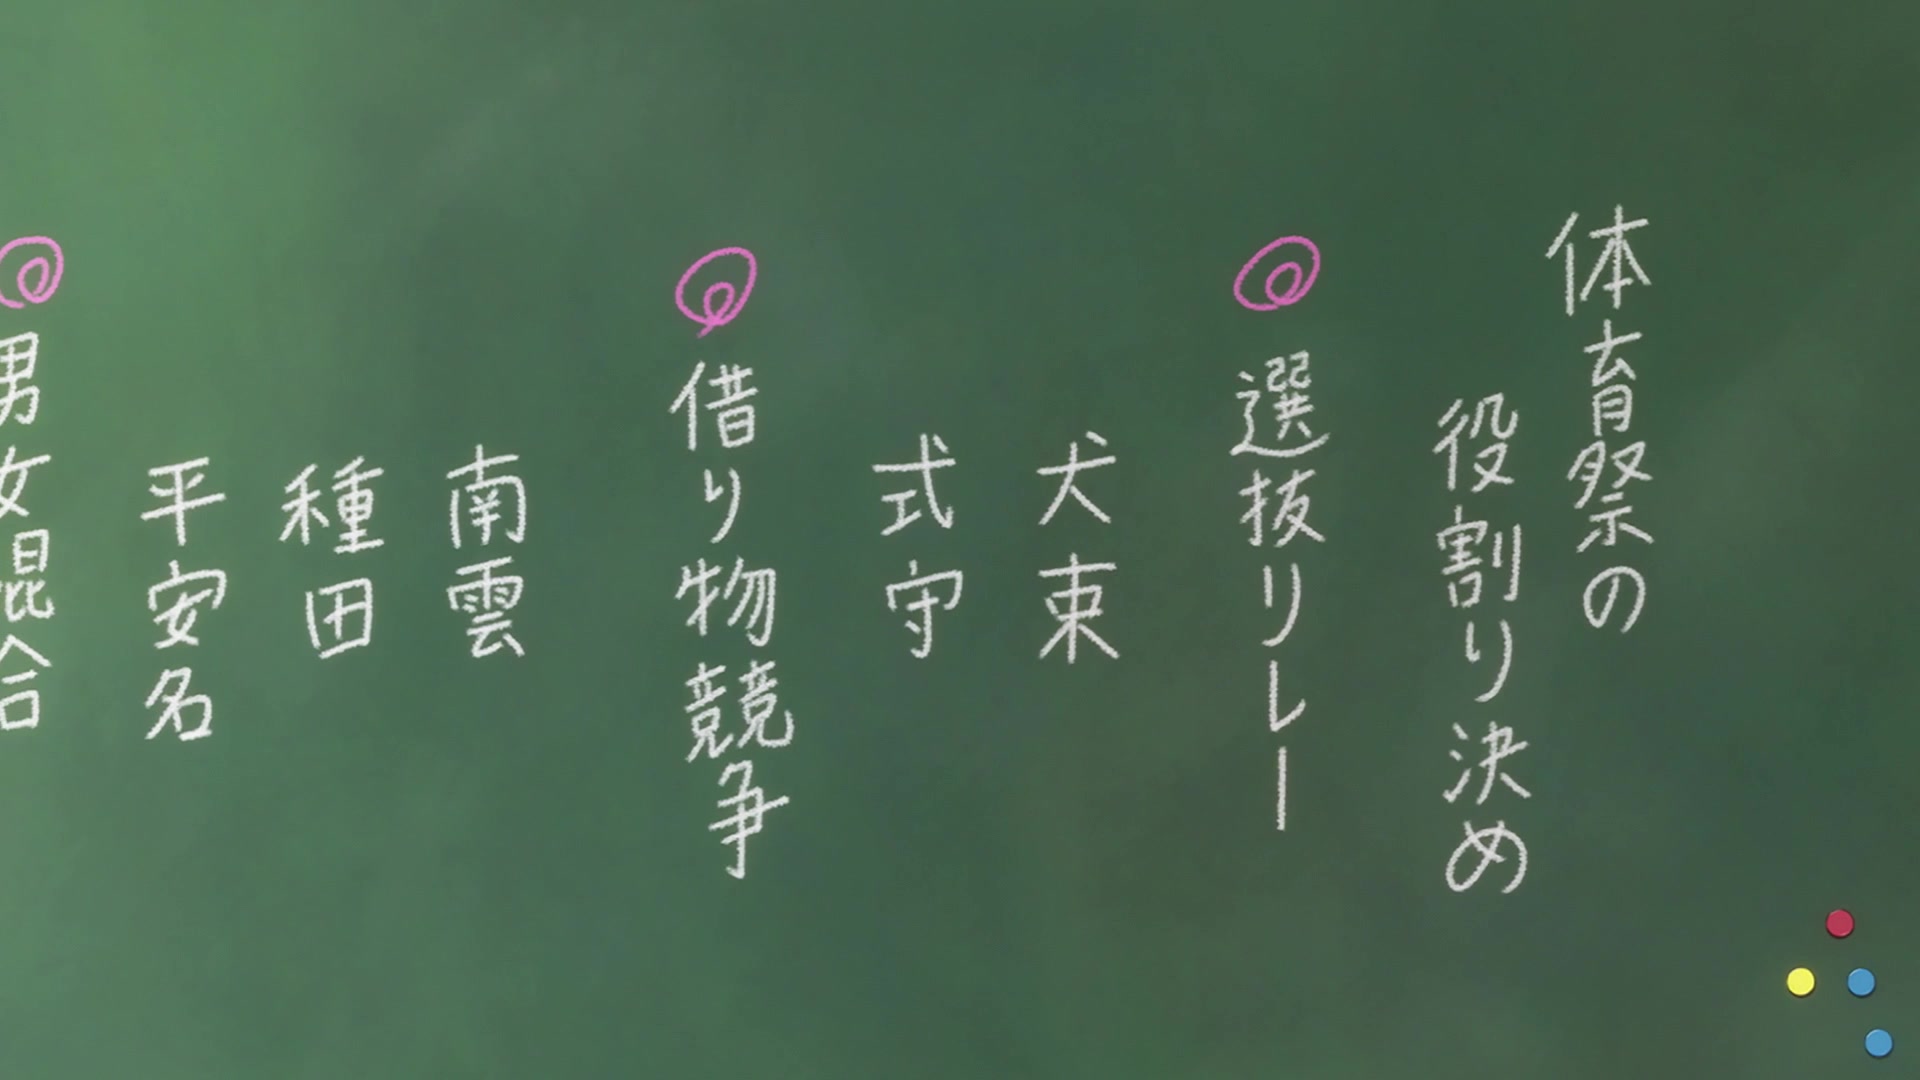 体育祭の
役割り決め
選抜リレー
犬束
式守
借り物競争
南雲
種田
平安名
男女混合